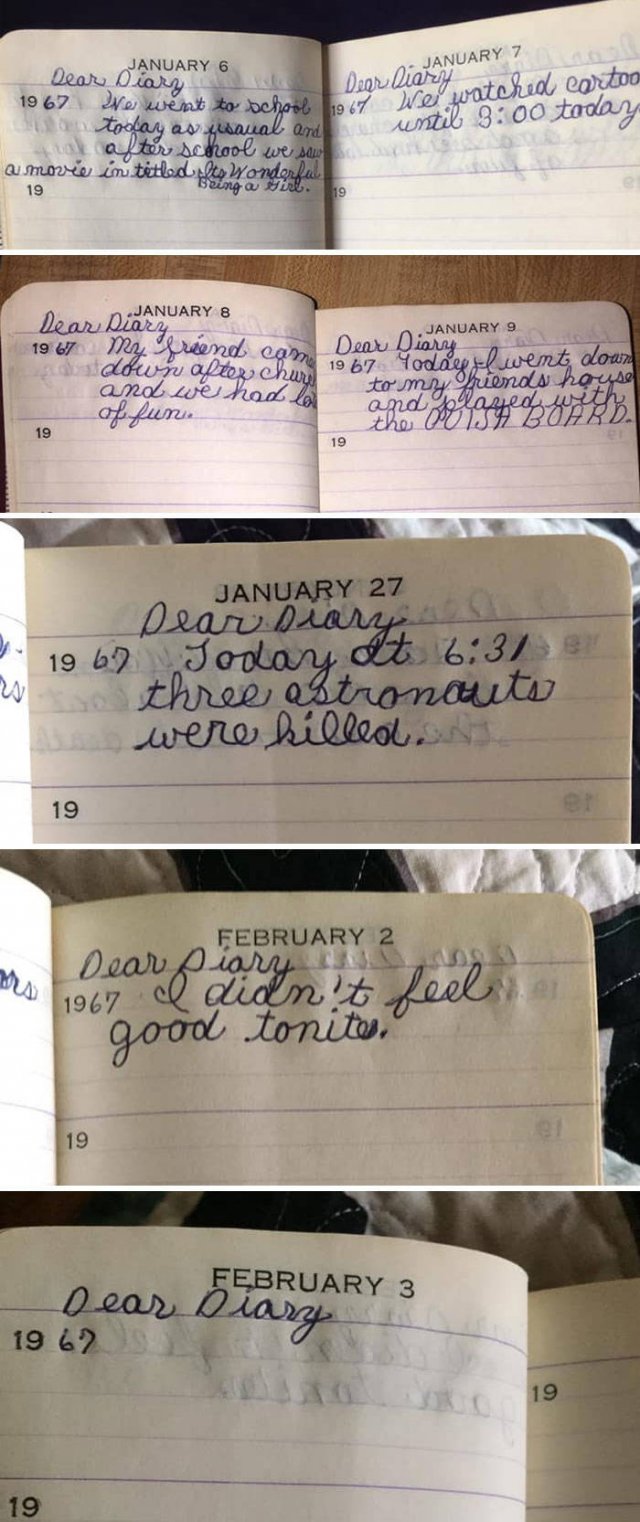 JANUARY 6
Dear Diary
1967 We went to school
today as usaual and
after school we saw
a movie in titled Its Wonderful
Being a Girl.
19
JANUARY 7
Dear Diary
1967 We watched cartoo
until 3:00 today
19
JANUARY 8
Dear Diary
1967 My friend came
down after church
and we had lo
of fun.
19
JANUARY 9
Dear Diary
1967 Today I went down
to my friends house
and played with
the OUIJA BOARD.
19
JANUARY 27
Dear Diary
1967 Today at 6:31
three astronauts
were killed.
19
FEBRUARY 2
Dear Diary
1967 I didn't feel
good tonite.
19
FEBRUARY 3
Dear Diary
1967
19
19